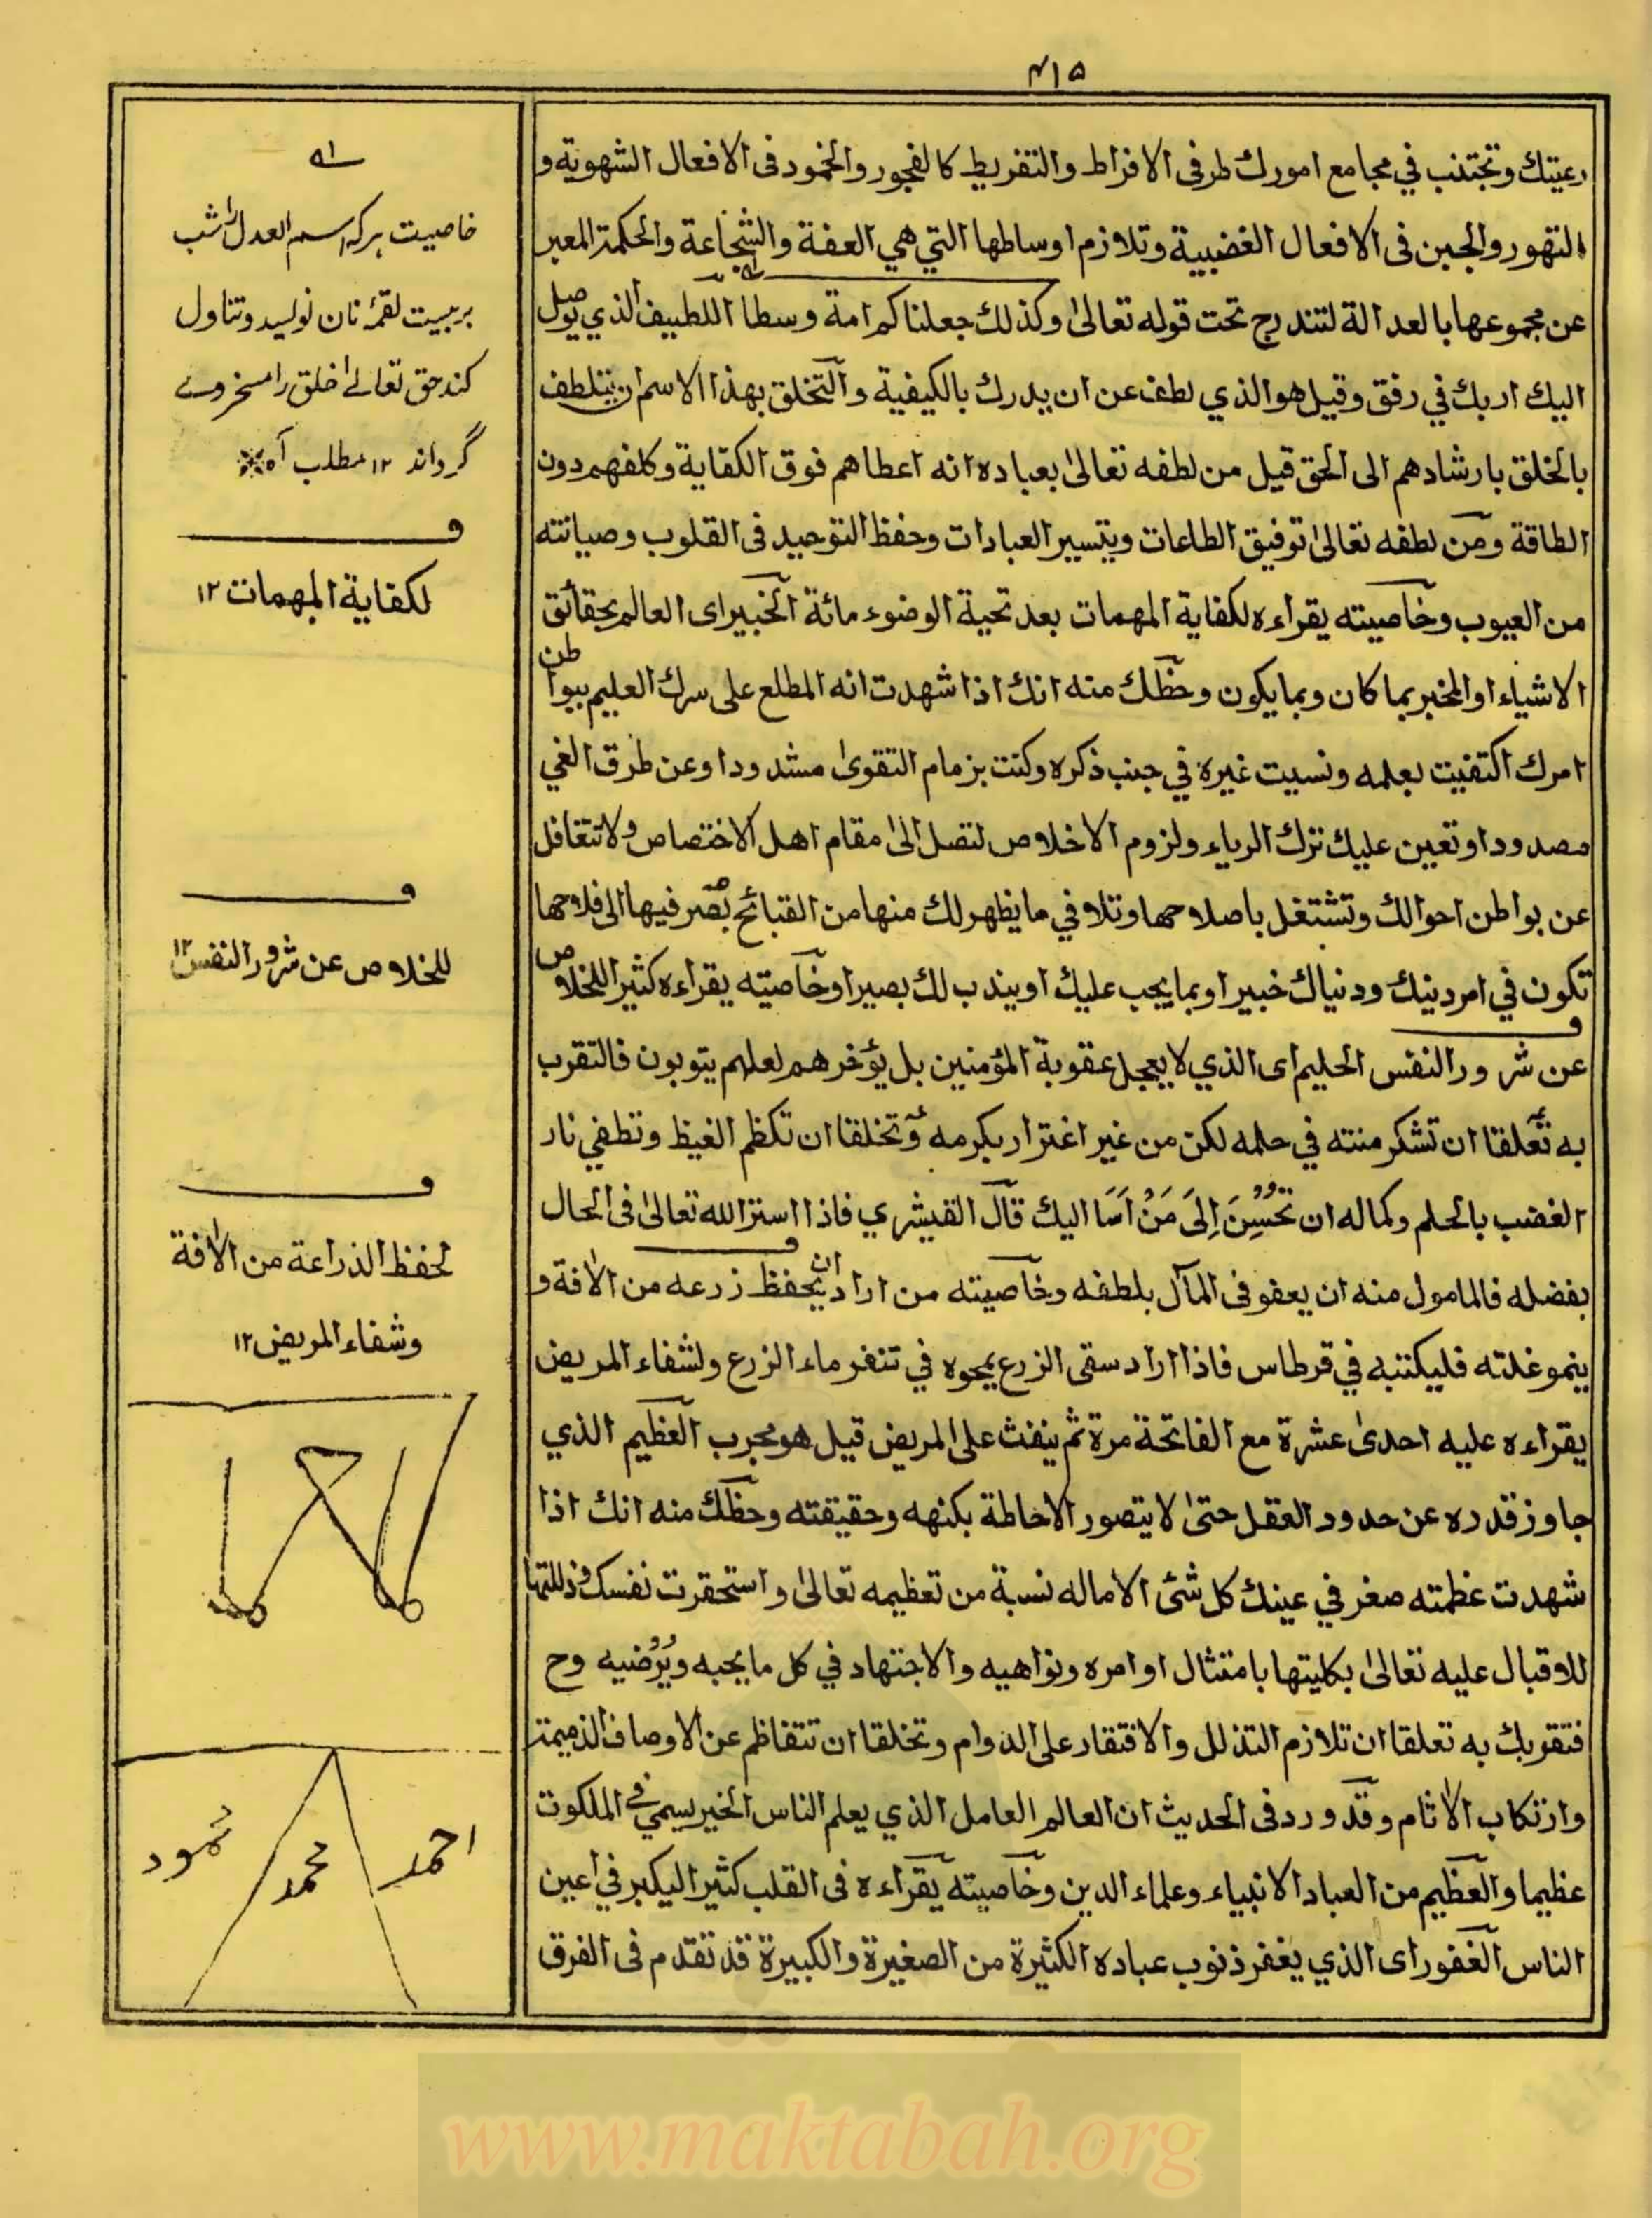 ٤١٥
رعيتك وتجتذب في مجامع امورك طرفى الافراط والتفريط كالفجور والخمود فى الافعال الشهوية و
التهور والجبن فى الافعال الغضبية وتلازم اوساطها التي هي العفة والشجاعة والحكمة المعبر
عن مجموعها بالعدالة لتندرج تحت قوله تعالىٰ وكذلك جعلناكم امة وسطا اللطيف الذي يوصل
اليك اربك في رفق وقيل هو الذي لطف عن ان يدرك بالكيفية والتخلق بهذا الاسم ان تتلطف
بالخلق بارشادهم الى الحق قيل من لطفه تعالىٰ بعباده انه اعطاهم فوق الكفاية وكلفهم دون
الطاقة ومن لطفه تعالىٰ توفيق الطاعات وتيسير العبادات وحفظ التوحيد فى القلوب وصيانته
من العيوب وخاصيته يقراءه لكفاية المهمات بعد تحية الوضوء مائة الخبير اى العالم بحقائق
الاشياء او المخبر بما كان وبما يكون وحظك منه انك اذا شهدت انه المطلع على سرك العليم ببواطن
امرك اكتفيت بعلمه ونسيت غيره في جنب ذكره وكنت بزمام التقوىٰ مشدودا وعن طرق الغي
مصدودا وتعين عليك ترك الرياء ولزوم الاخلاص لتصل الىٰ مقام اهل الاختصاص ولا تتغافل
عن بواطن احوالك وتشتغل باصلاحها وتلافي ما يظهر لك منها من القبائح بصر فيها الى فلاحها
تكون في امر دينك ودنياك خبيرا وبما يجب عليك او يندب لك بصيرا وخاصيته يقراءه كثيرا للخلاص
عن شرور النفس الحليم اى الذي لا يعجل عقوبة المؤمنين بل يؤخرهم لعلهم يتوبون فالتقرب
به تعلقا ان تشكر منته في حلمه لكن من غير اغترار بكرمه وتخلقا ان تكظم الغيظ وتطفي نار
الغضب بالحلم وكماله ان تُحْسِنَ اِلىَ مَنْ اَسَا اليك قال القيشري فاذا استر الله تعالىٰ فى الحال
بفضله فالمامول منه ان يعفو فى المآل بلطفه وخاصيته من اراد ان يحفظ زرعه من الافة و
ينمو غلته فليكتبه في قرطاس فاذا اراد سقى الزرع يمحوه في تنفر ماء الزرع ولشفاء المريض
يقراءه عليه احدىٰ عشرة مع الفاتحة مرة ثم ينفث على المريض قيل هو مجرب العظيم الذي
جاوز قدره عن حدود العقل حتىٰ لا يتصور الاحاطة بكنهه وحقيقته وحظك منه انك اذا
شهدت عظمته صغر في عينك كل شئ الا ماله نسبة من تعظيمه تعالىٰ واستحقرت نفسك وذللتها
للاقبال عليه تعالىٰ بكليتها بامتثال اوامره ونواهيه والاجتهاد في كل ما يحبه ويُرْضيه وح
فتقربك به تعلقا ان تلازم التذلل والافتقار على الدوام وتخلقا ان تتفاظم عن الاوصاف الذميمة
وارتكاب الاثام وقد ورد فى الحديث ان العالم العامل الذي يعلم الناس الخير يسمي في الملكوت
عظيما والعظيم من العباد الانبياء وعلماء الدين وخاصيته يقراءه فى القلب كثيرا ليكبر في اعين
الناس الغفور اى الذي يغفر ذنوب عباده الكثيرة من الصغيرة والكبيرة قد تقدم فى الفرق
خاصيت هركه اسم العدل را شب
بربيست لقمۂ نان نويسد وتناول
كند حق تعالےٰ خلق را مسخر وے
گرداند ١٢ مطلب
ف
لكفاية المهمات ١٢
ف
للخلاص عن شرور النفس ١٢
ف
لحفظ الذراعة من الافة
وشفاء المريض ١٢
احمد
محمد
www.maktabah.org